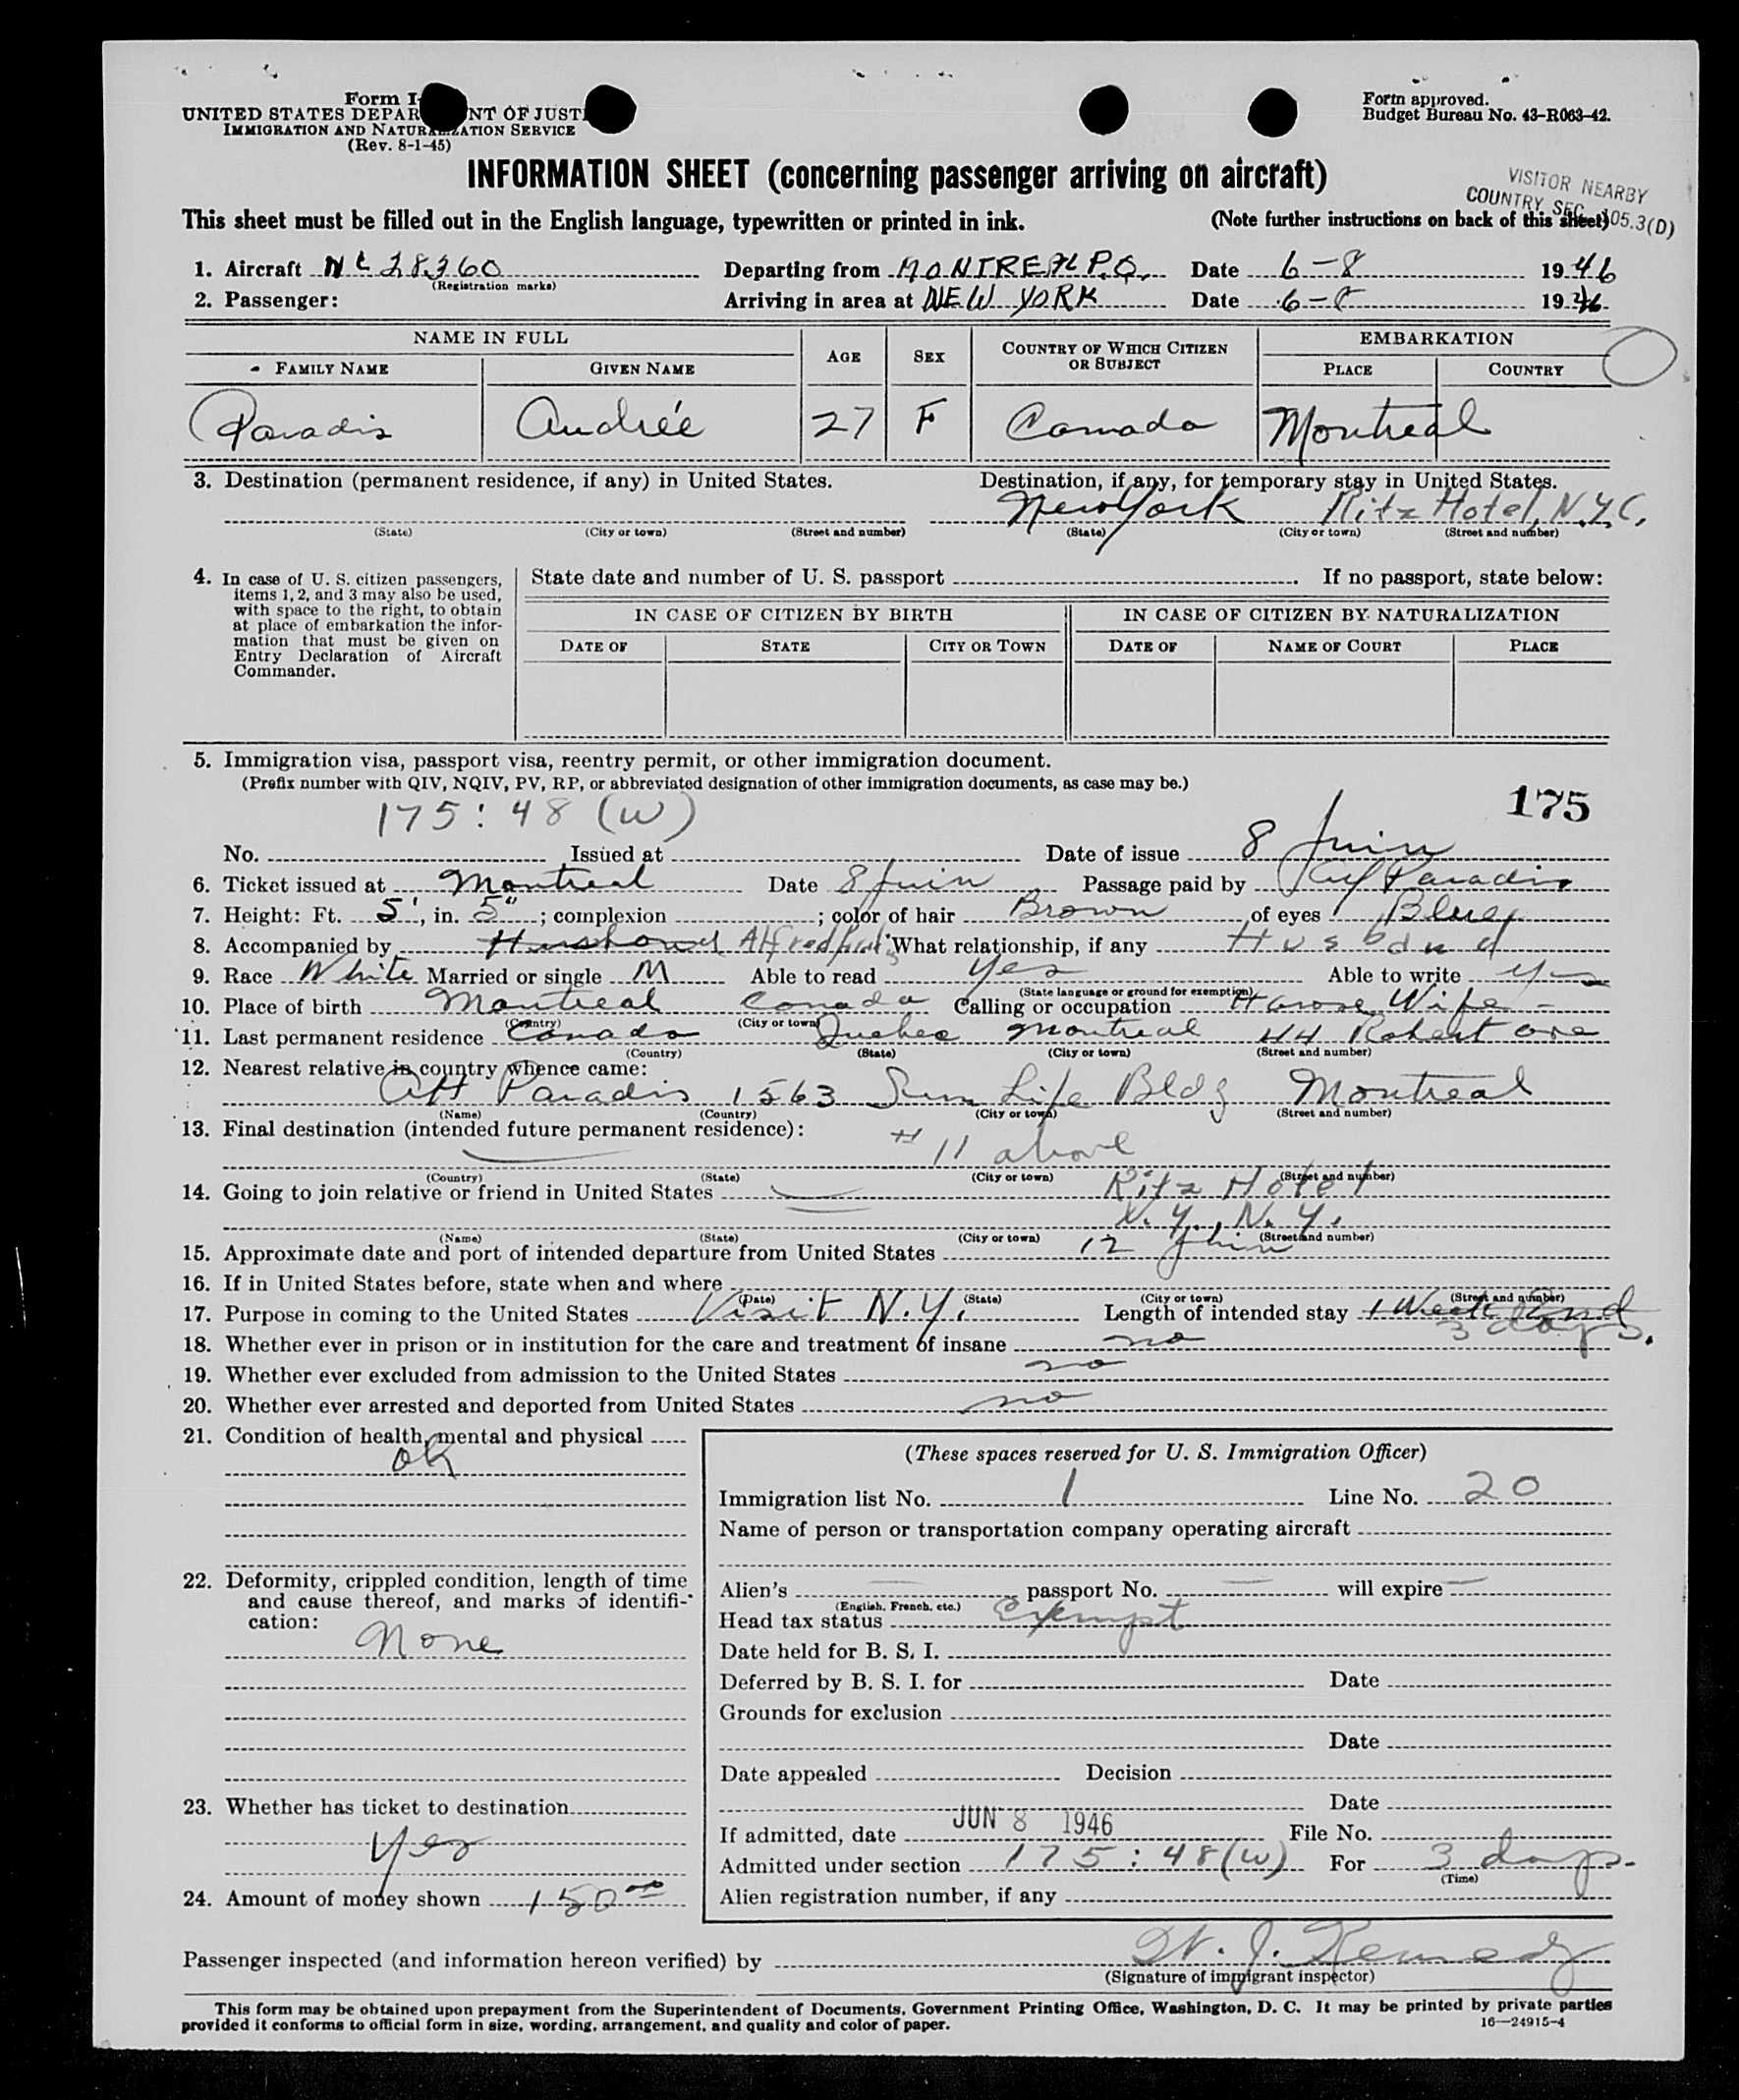 Form I-
UNITED STATES DEPAR NT OF JUSTI
IMMIGRATION AND NATURALIZATION SERVICE
(Rev. 8-1-45)
Form approved.
Budget Bureau No. 43-R063-42.
INFORMATION SHEET (concerning passenger arriving on aircraft)
VISITOR NEARBY
COUNTRY SEC. 105.3(D)
This sheet must be filled out in the English language, typewritten or printed in ink. (Note further instructions on back of this sheet)
1. Aircraft NC 28360 Departing from MONTREAL P.Q. Date 6-8 1946
(Registration marks)
2. Passenger: Arriving in area at NEW YORK Date 6-8 1946
NAME IN FULL AGE SEX COUNTRY OF WHICH CITIZEN OR SUBJECT EMBARKATION
FAMILY NAME GIVEN NAME PLACE COUNTRY
Paradis Andrée 27 F Canada Montreal
3. Destination (permanent residence, if any) in United States. Destination, if any, for temporary stay in United States.
New York Ritz Hotel, N.Y.C.
(State) (City or town) (Street and number) (State) (City or town) (Street and number)
4. In case of U. S. citizen passengers, items 1, 2, and 3 may also be used, with space to the right, to obtain at place of embarkation the information that must be given on Entry Declaration of Aircraft Commander.
State date and number of U. S. passport . If no passport, state below:
IN CASE OF CITIZEN BY BIRTH IN CASE OF CITIZEN BY NATURALIZATION
DATE OF STATE CITY OR TOWN DATE OF NAME OF COURT PLACE
5. Immigration visa, passport visa, reentry permit, or other immigration document.
(Prefix number with QIV, NQIV, PV, RP, or abbreviated designation of other immigration documents, as case may be.)
175
175:48 (W)
No. Issued at Date of issue 8 Juin
6. Ticket issued at Montreal Date 8 Juin Passage paid by Paradis
7. Height: Ft. 5', in. 5"; complexion ; color of hair Brown of eyes Blue
8. Accompanied by Alfred What relationship, if any Husband
9. Race White Married or single M Able to read Yes Able to write Yes
(State language or ground for exemption)
10. Place of birth Montreal Canada Calling or occupation House Wife -
(Country) (City or town)
11. Last permanent residence Canada Quebec Montreal 44 Robert
(Country) (State) (City or town) (Street and number)
12. Nearest relative in country whence came:
Alf Paradis 1563 Sun Life Bldg Montreal
(Name) (Country) (City or town) (Street and number)
13. Final destination (intended future permanent residence):
# 11 above
(Country) (State) (City or town) (Street and number)
14. Going to join relative or friend in United States Ritz Hotel
N.Y., N.Y.
(Name) (State) (City or town) (Street and number)
15. Approximate date and port of intended departure from United States 12 Juin
16. If in United States before, state when and where
(Date) (State) (City or town) (Street and number)
17. Purpose in coming to the United States Visit N.Y. Length of intended stay 1 Week End
3 days.
18. Whether ever in prison or in institution for the care and treatment of insane no
19. Whether ever excluded from admission to the United States no
20. Whether ever arrested and deported from United States no
21. Condition of health, mental and physical
ok
22. Deformity, crippled condition, length of time
and cause thereof, and marks of identifi-
cation:
None
23. Whether has ticket to destination
Yes
24. Amount of money shown 150.00
(These spaces reserved for U. S. Immigration Officer)
Immigration list No. 1 Line No. 20
Name of person or transportation company operating aircraft
Alien's passport No. will expire
(English, French, etc.)
Head tax status Exempt
Date held for B. S. I.
Deferred by B. S. I. for Date
Grounds for exclusion
Date
Date appealed Decision
Date
If admitted, date JUN 8 1946 File No.
Admitted under section 175:48(W) For 3 days.
(Time)
Alien registration number, if any
Passenger inspected (and information hereon verified) by W. J. Kennedy
(Signature of immigrant inspector)
This form may be obtained upon prepayment from the Superintendent of Documents, Government Printing Office, Washington, D. C. It may be printed by private parties
provided it conforms to official form in size, wording, arrangement, and quality and color of paper. 16—24915-4